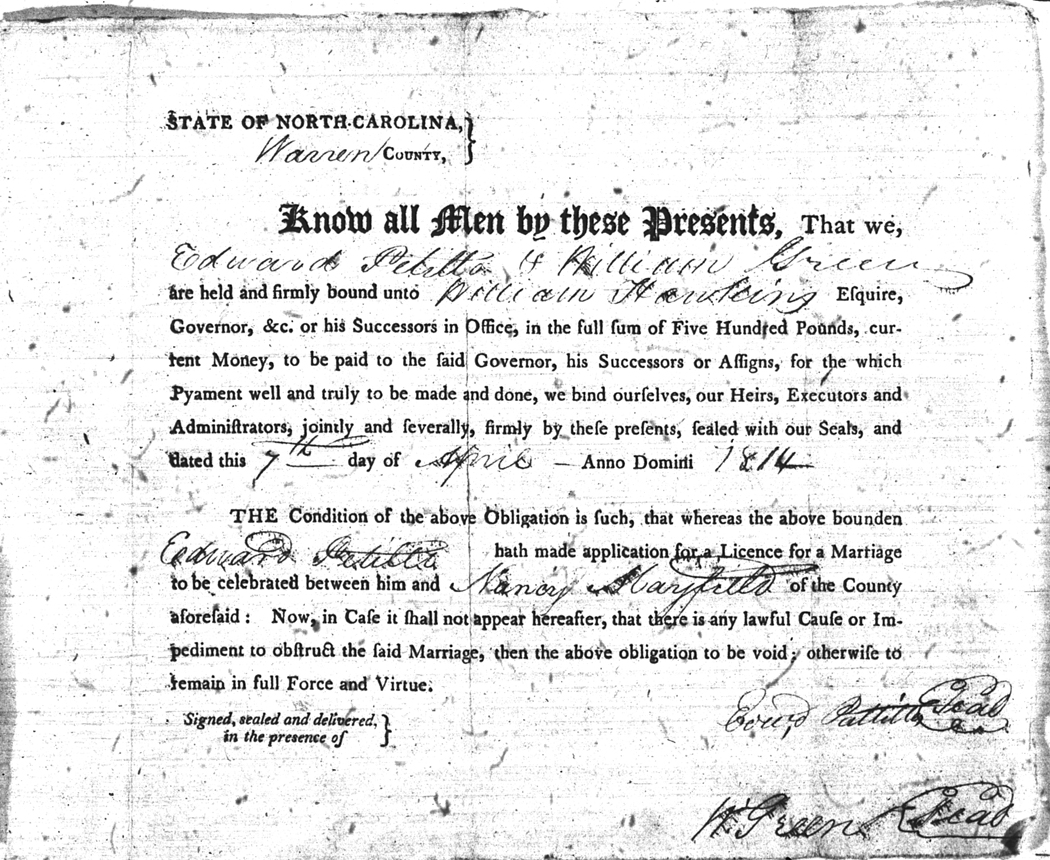 STATE OF NORTH-CAROLINA,
Warren COUNTY,
Know all Men by these Presents, That we,
Edward Petillo & William Green
are held and firmly bound unto William Hawkins Eſquire,
Governor, &c. or his Successors in Office, in the full ſum of Five Hundred Pounds, cur-
rent Money, to be paid to the ſaid Governor, his Successors or Aſſigns, for the which
Pyament well and truly to be made and done, we bind ourſelves, our Heirs, Executors and
Adminiſtrators, jointly and ſeverally, firmly by theſe preſents, ſealed with our Seals, and
dated this 7th day of April Anno Domini 1814
THE Condition of the above Obligation is ſuch, that whereas the above bounden
Edward Petillo hath made application for a Licence for a Marriage
to be celebrated between him and Nancy Mayfield of the County
aforeſaid: Now, in Caſe it ſhall not appear hereafter, that there is any lawful Cauſe or Im-
pediment to obſtruct the ſaid Marriage, then the above obligation to be void; otherwiſe to
remain in full Force and Virtue.
Signed, sealed and delivered,
in the presence of
Edwd Pattillo Seal
W Green Seal